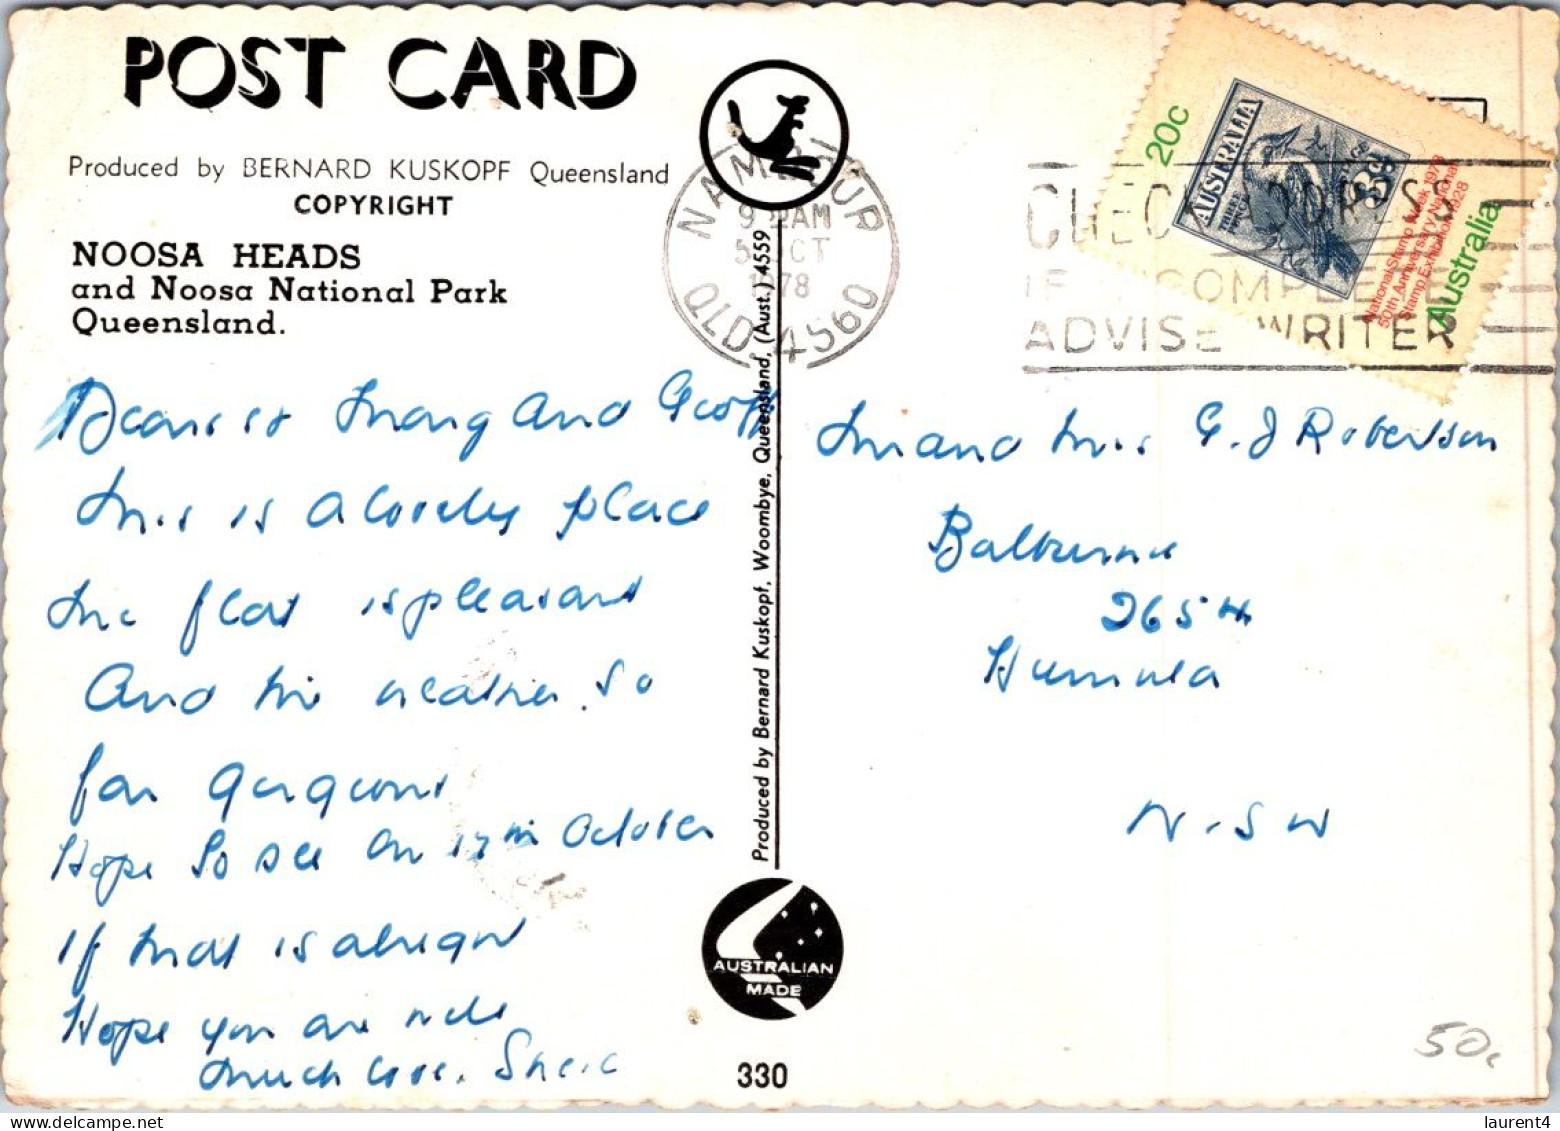 POST CARD
Produced by BERNARD KUSKOPF Queensland
COPYRIGHT
NOOSA HEADS
and Noosa National Park
Queensland.
Dearest Mary and Geoff
This is a lovely place
the flat is pleasant
And the weather so
far gorgeous
Hope to see on 17th October
If that is alright
Hope you are well
much love. Sheila
Produced by Bernard Kuskopf, Woombye, Queensland, (Aust.) 4559
AUSTRALIAN
MADE
330
NAMBOUR
9 AM
5 OCT
1978
QLD 4560
CHECK ADDRESS
IF INCOMPLETE
ADVISE WRITER
20c
AUSTRALIA
THREE PENCE
POSTAGE
3d
National Stamp Week 1978
50th Anniversary National
Stamp Exhibition 1928
Australia
Mr and Mrs G. J Robertson
2654
Humula
N.S.W
50c
laurent4